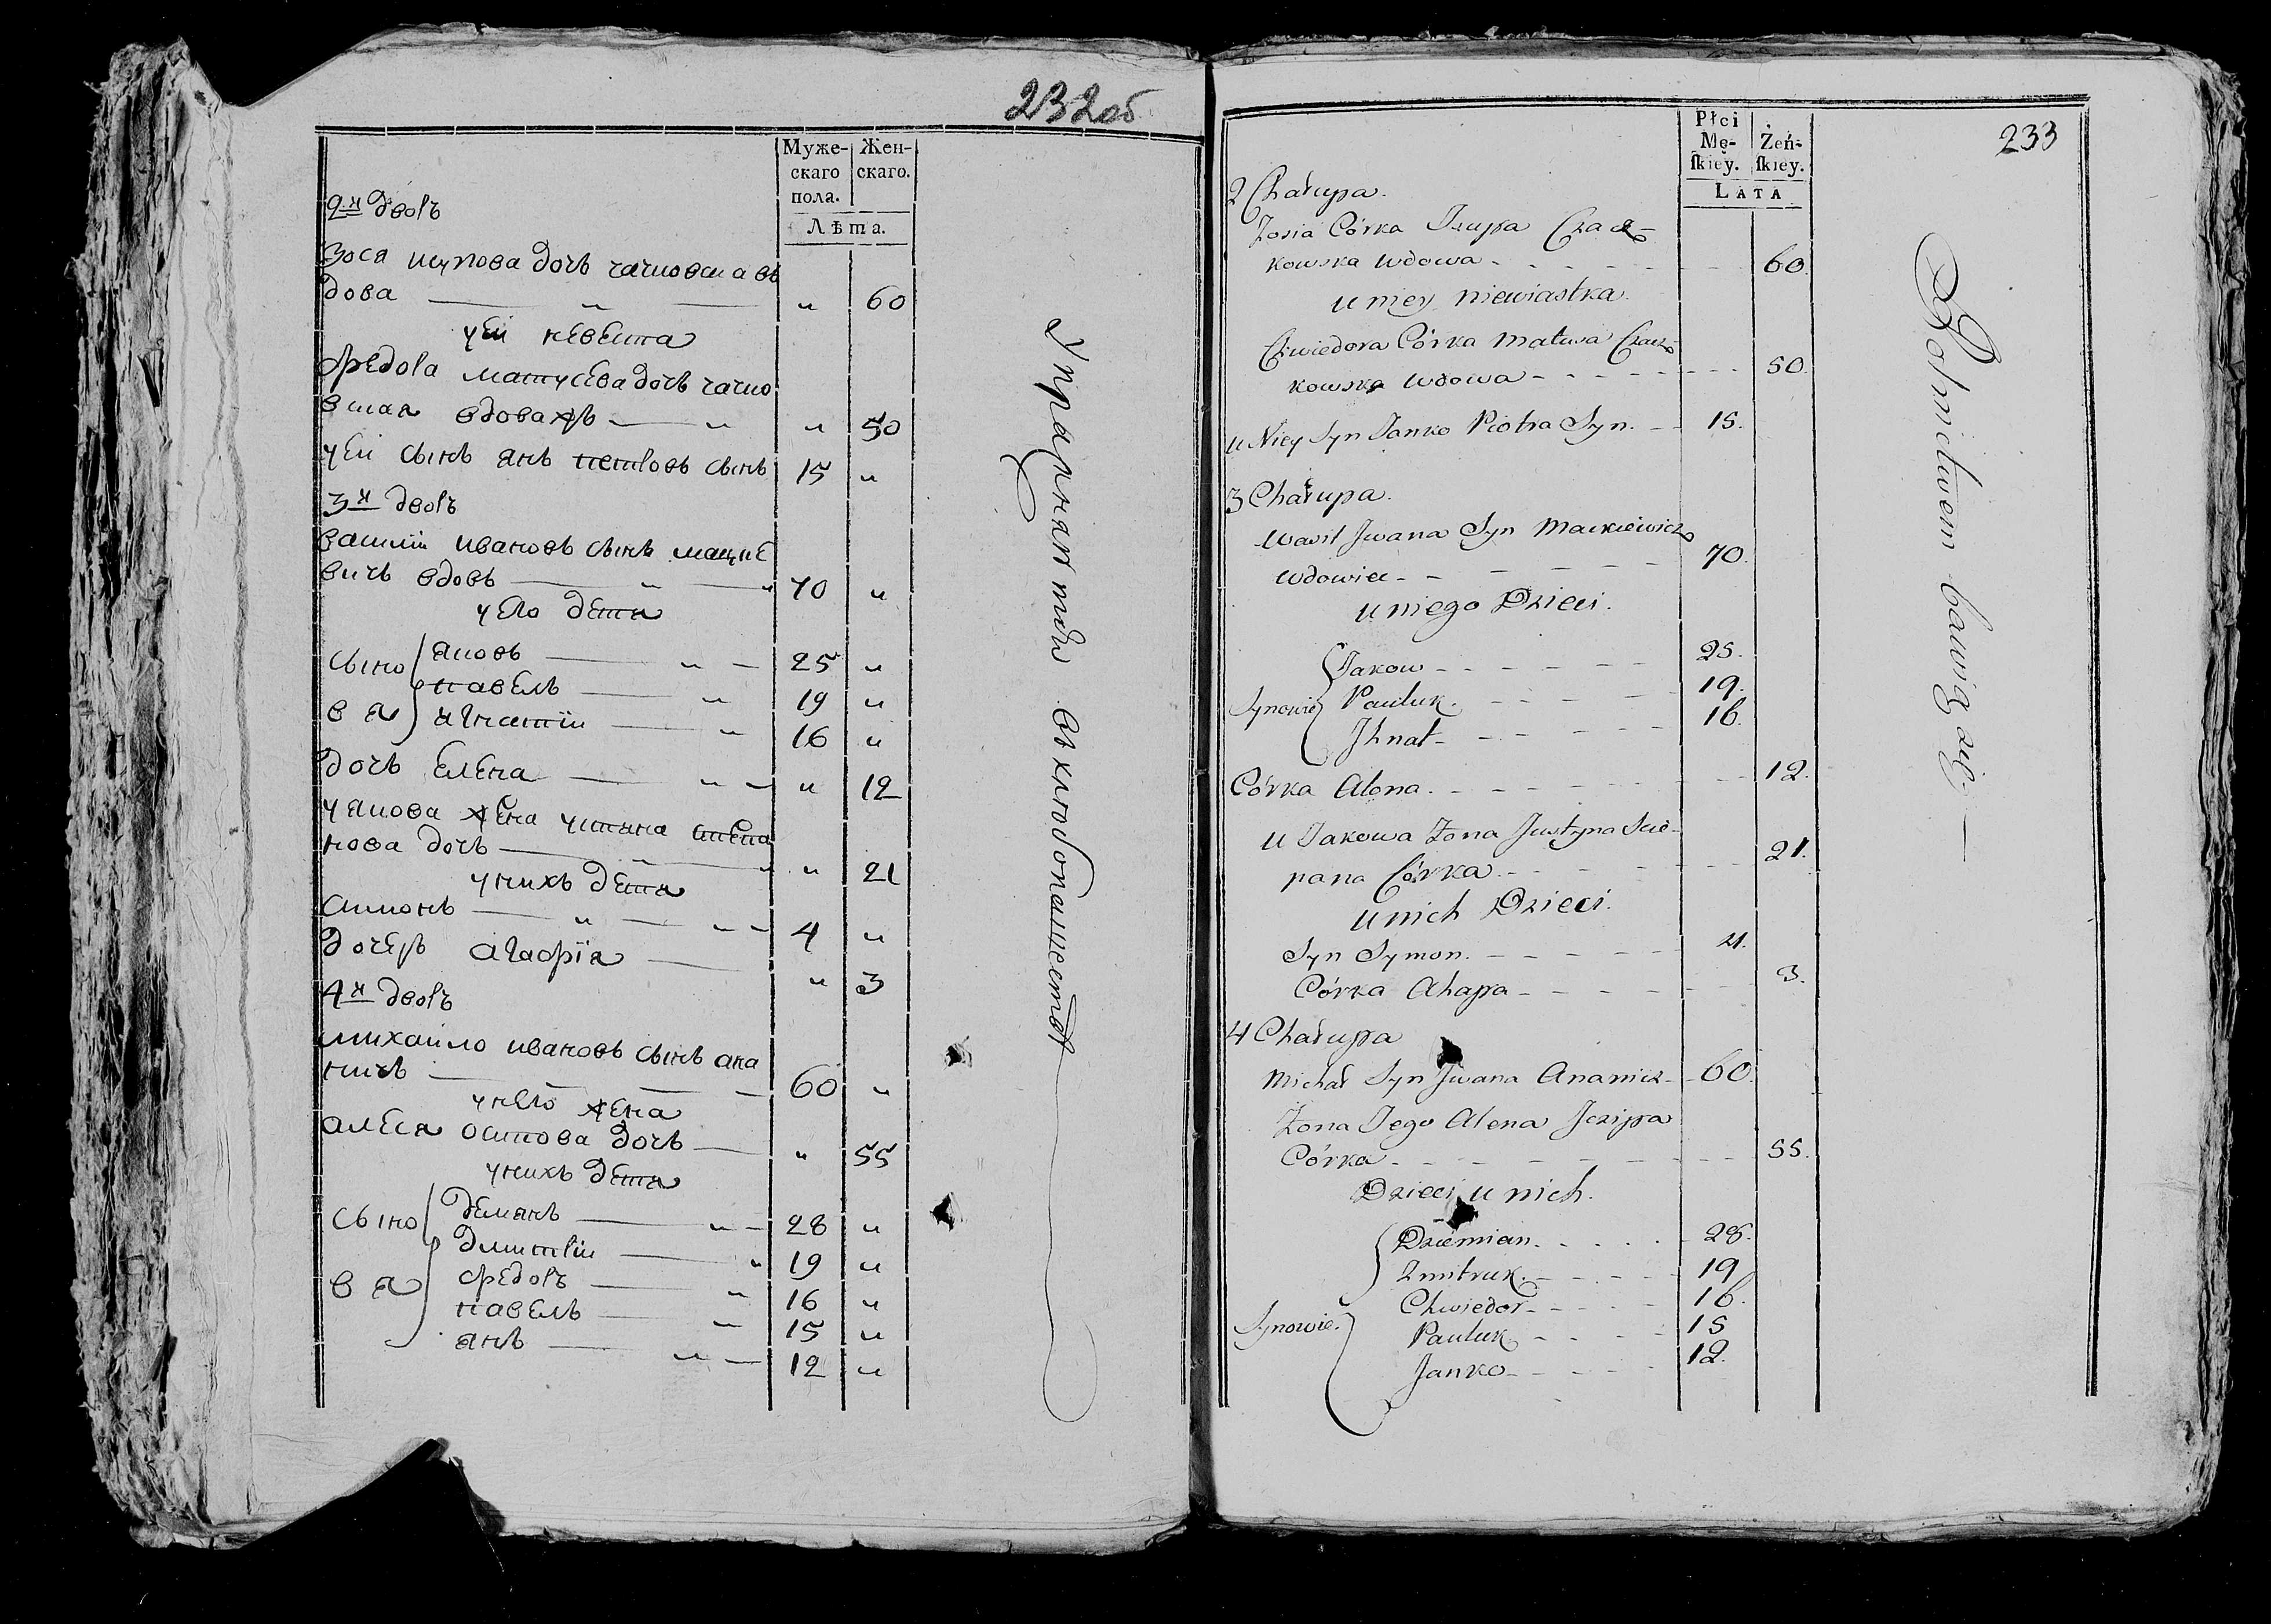 232об
Муже-
скаго
пола.
Жен-
скаго.
Лѣта.
2й дворъ
Зося юзупова дочь чачковска въ
дова " 60
уей невѣста
Федора матусева дочь чачко
вская вдова " 50
уей сынъ янъ петровъ сынъ 15 "
3й дворъ
василiй ивановъ сынъ мацке
вичъ вдовъ 70 "
уего дети
сыно яковъ 25 "
павелъ 19 "
вя игнатiй 16 "
дочь елена " 12
уякова жена устина степа
нова дочь " 21
унихъ дети
симонъ 4 "
дочерь агафiя " 3
4й дворъ
михайло ивановъ сынъ ана
ничъ 60 "
унего жена
алеся осипова дочь " 55
унихъ дети
сыно демянъ 28 "
дмитрiй 19 "
вя федоръ 16 "
павелъ 15 "
янъ 12 "
Упражняются въ хлѣбопашествѣ
233
Płci
Mę-
ſkiey.
Żeń-
ſkiey.
LATA
2 Chałupa.
Zosia Córka Józupa Czacz-
kowska wdowa 60.
u niey niewiastka.
Chwiedora Córka Matusa Czacz-
kowska wdowa 50.
u Niey Syn Janko Piotra Syn. 15.
3 Chałupa.
Wasil Jwana Syn Mackiewicz
wdowiec 70.
u niego Dzieci.
Jakow 25.
Synowie Pauluk. 19.
Jhnat 16.
Córka Alona. 12.
u Jakowa Żona Justyna Scie-
pana Córka 21.
u nich Dzieci.
Syn Symon. 4.
Córka Ahapa 3.
4 Chałupa
Michał Syn Jwana Ananicz 60.
Żona Jego Alena Jozippa
Córka 55.
Dzieci u nich.
Dziemian. 28.
Zmitruk. 19
Chwiedor 16.
Synowie. Pauluk 15
Janko 12.
Rolnictwem bawią się.